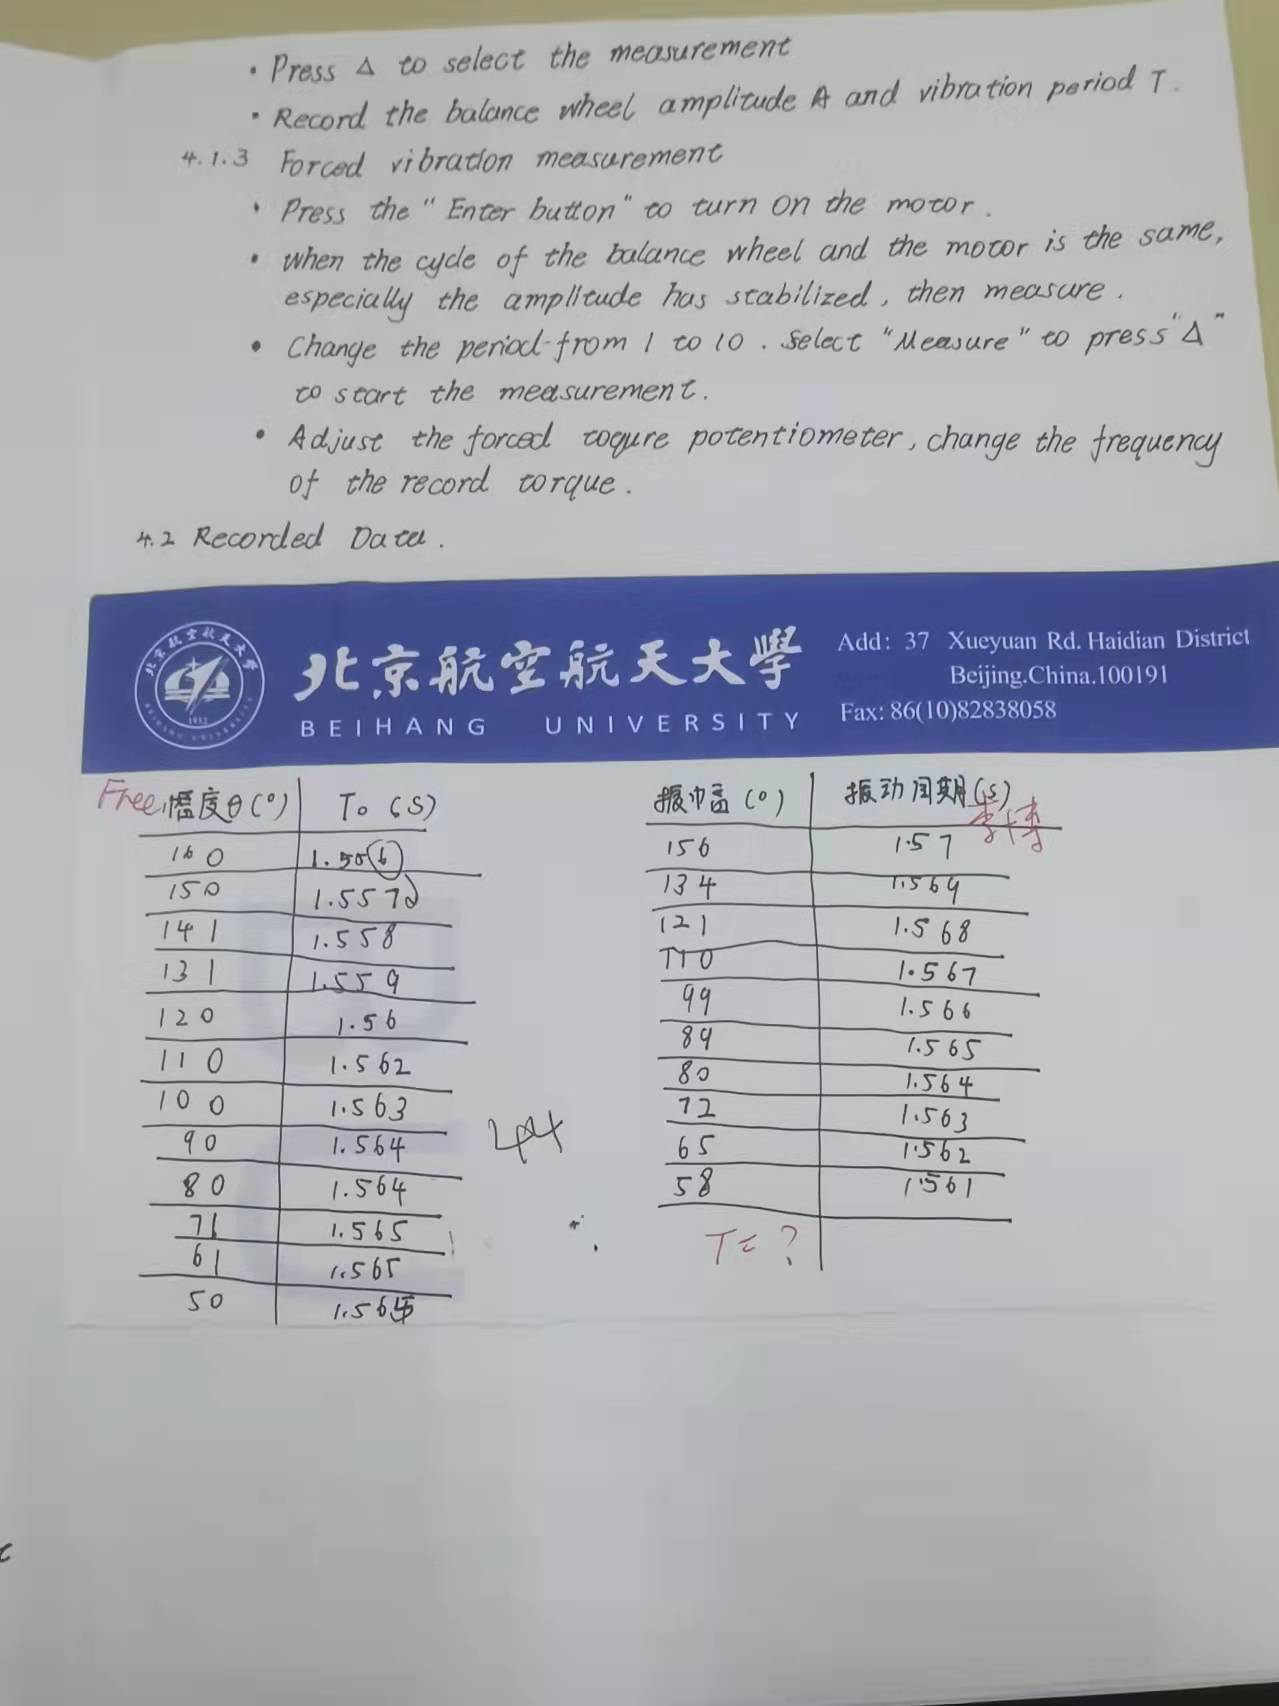 • Press Δ to select the measurement
• Record the balance wheel amplitude A and vibration period T.
4.1.3 Forced vibration measurement
• Press the "Enter button" to turn on the motor.
• when the cycle of the balance wheel and the motor is the same,
especially the amplitude has stabilized, then measure.
• Change the period from 1 to 10. Select "Measure" to press "Δ"
to start the measurement.
• Adjust the forced toqure potentiometer, change the frequency
of the record torque.
4.2 Recorded Data.
北京航空航天大學
BEIHANG UNIVERSITY
Add: 37 Xueyuan Rd. Haidian District
Beijing.China.100191
Fax: 86(10)82838058
北京航空航天大學
1952
Free 幅度θ(°) T₀ (S)
160 1.556
150 1.557
141 1.558
131 1.559
120 1.56
110 1.562
100 1.563
90 1.564
80 1.564
71 1.565
61 1.565
50 1.565
振幅(°) 振动周期(s)
156 1.57
134 1.569
121 1.568
110 1.567
99 1.566
89 1.565
80 1.564
72 1.563
65 1.562
58 1.561
T = ?